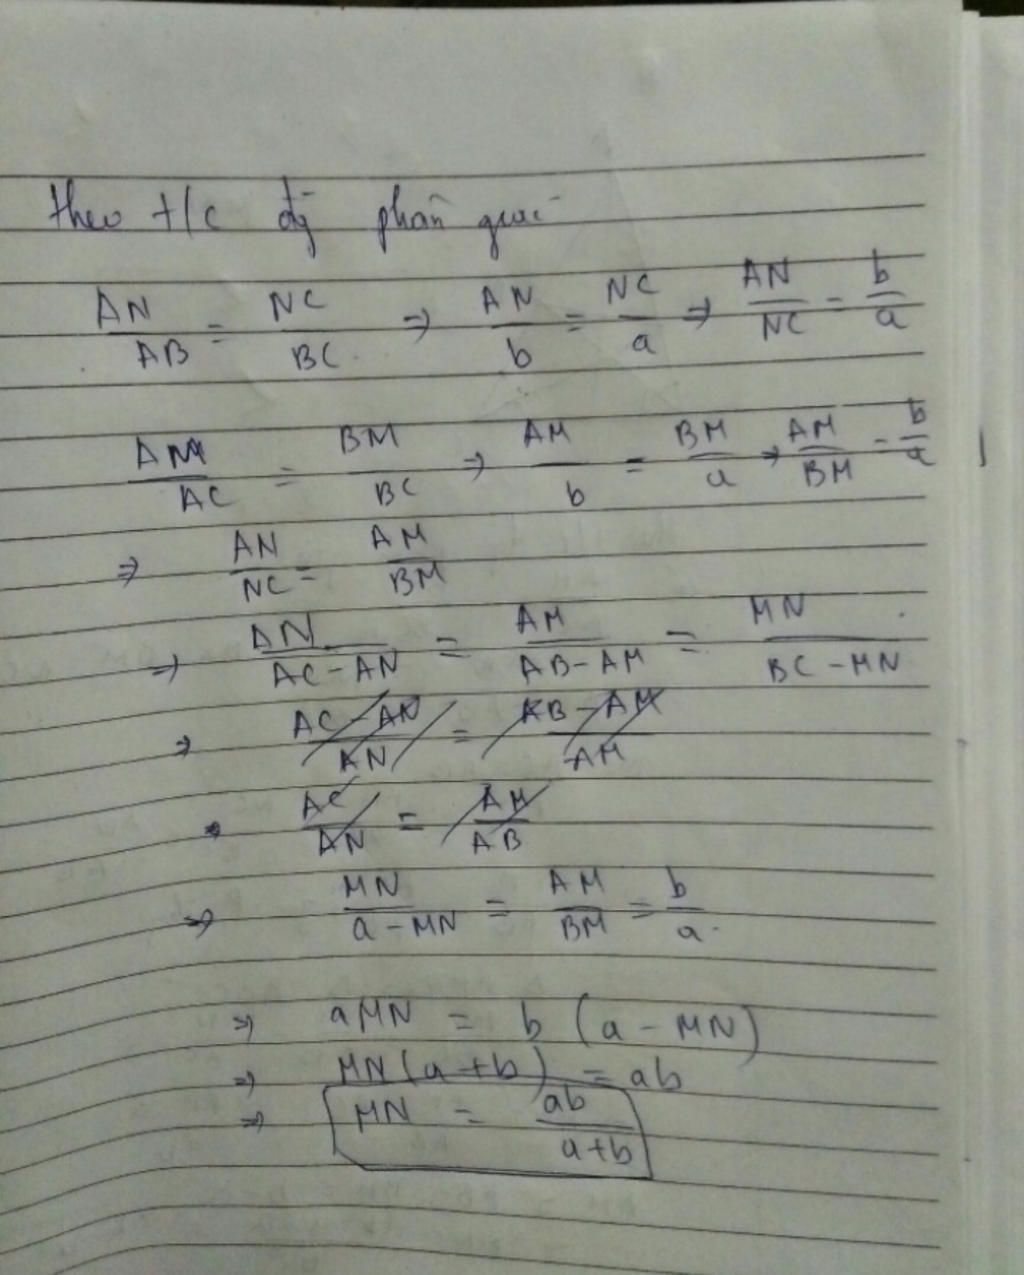 theo t/c đg phân giác
AN/AB = NC/BC ⇒ AN/b = NC/a ⇒ AN/NC = b/a
AM/AC = BM/BC ⇒ AM/b = BM/a ⇒ AM/BM = b/a
⇒ AN/NC = AM/BM
⇒ AN/AC-AN = AM/AB-AM = MN/BC-MN
⇒ AC-AN/AN = AB-AM/AM
⇒ AC/AN = AM/AB
⇒ MN/a-MN = AM/BM = b/a
⇒ aMN = b (a-MN)
⇒ MN(a+b) = ab
⇒ MN = ab/a+b